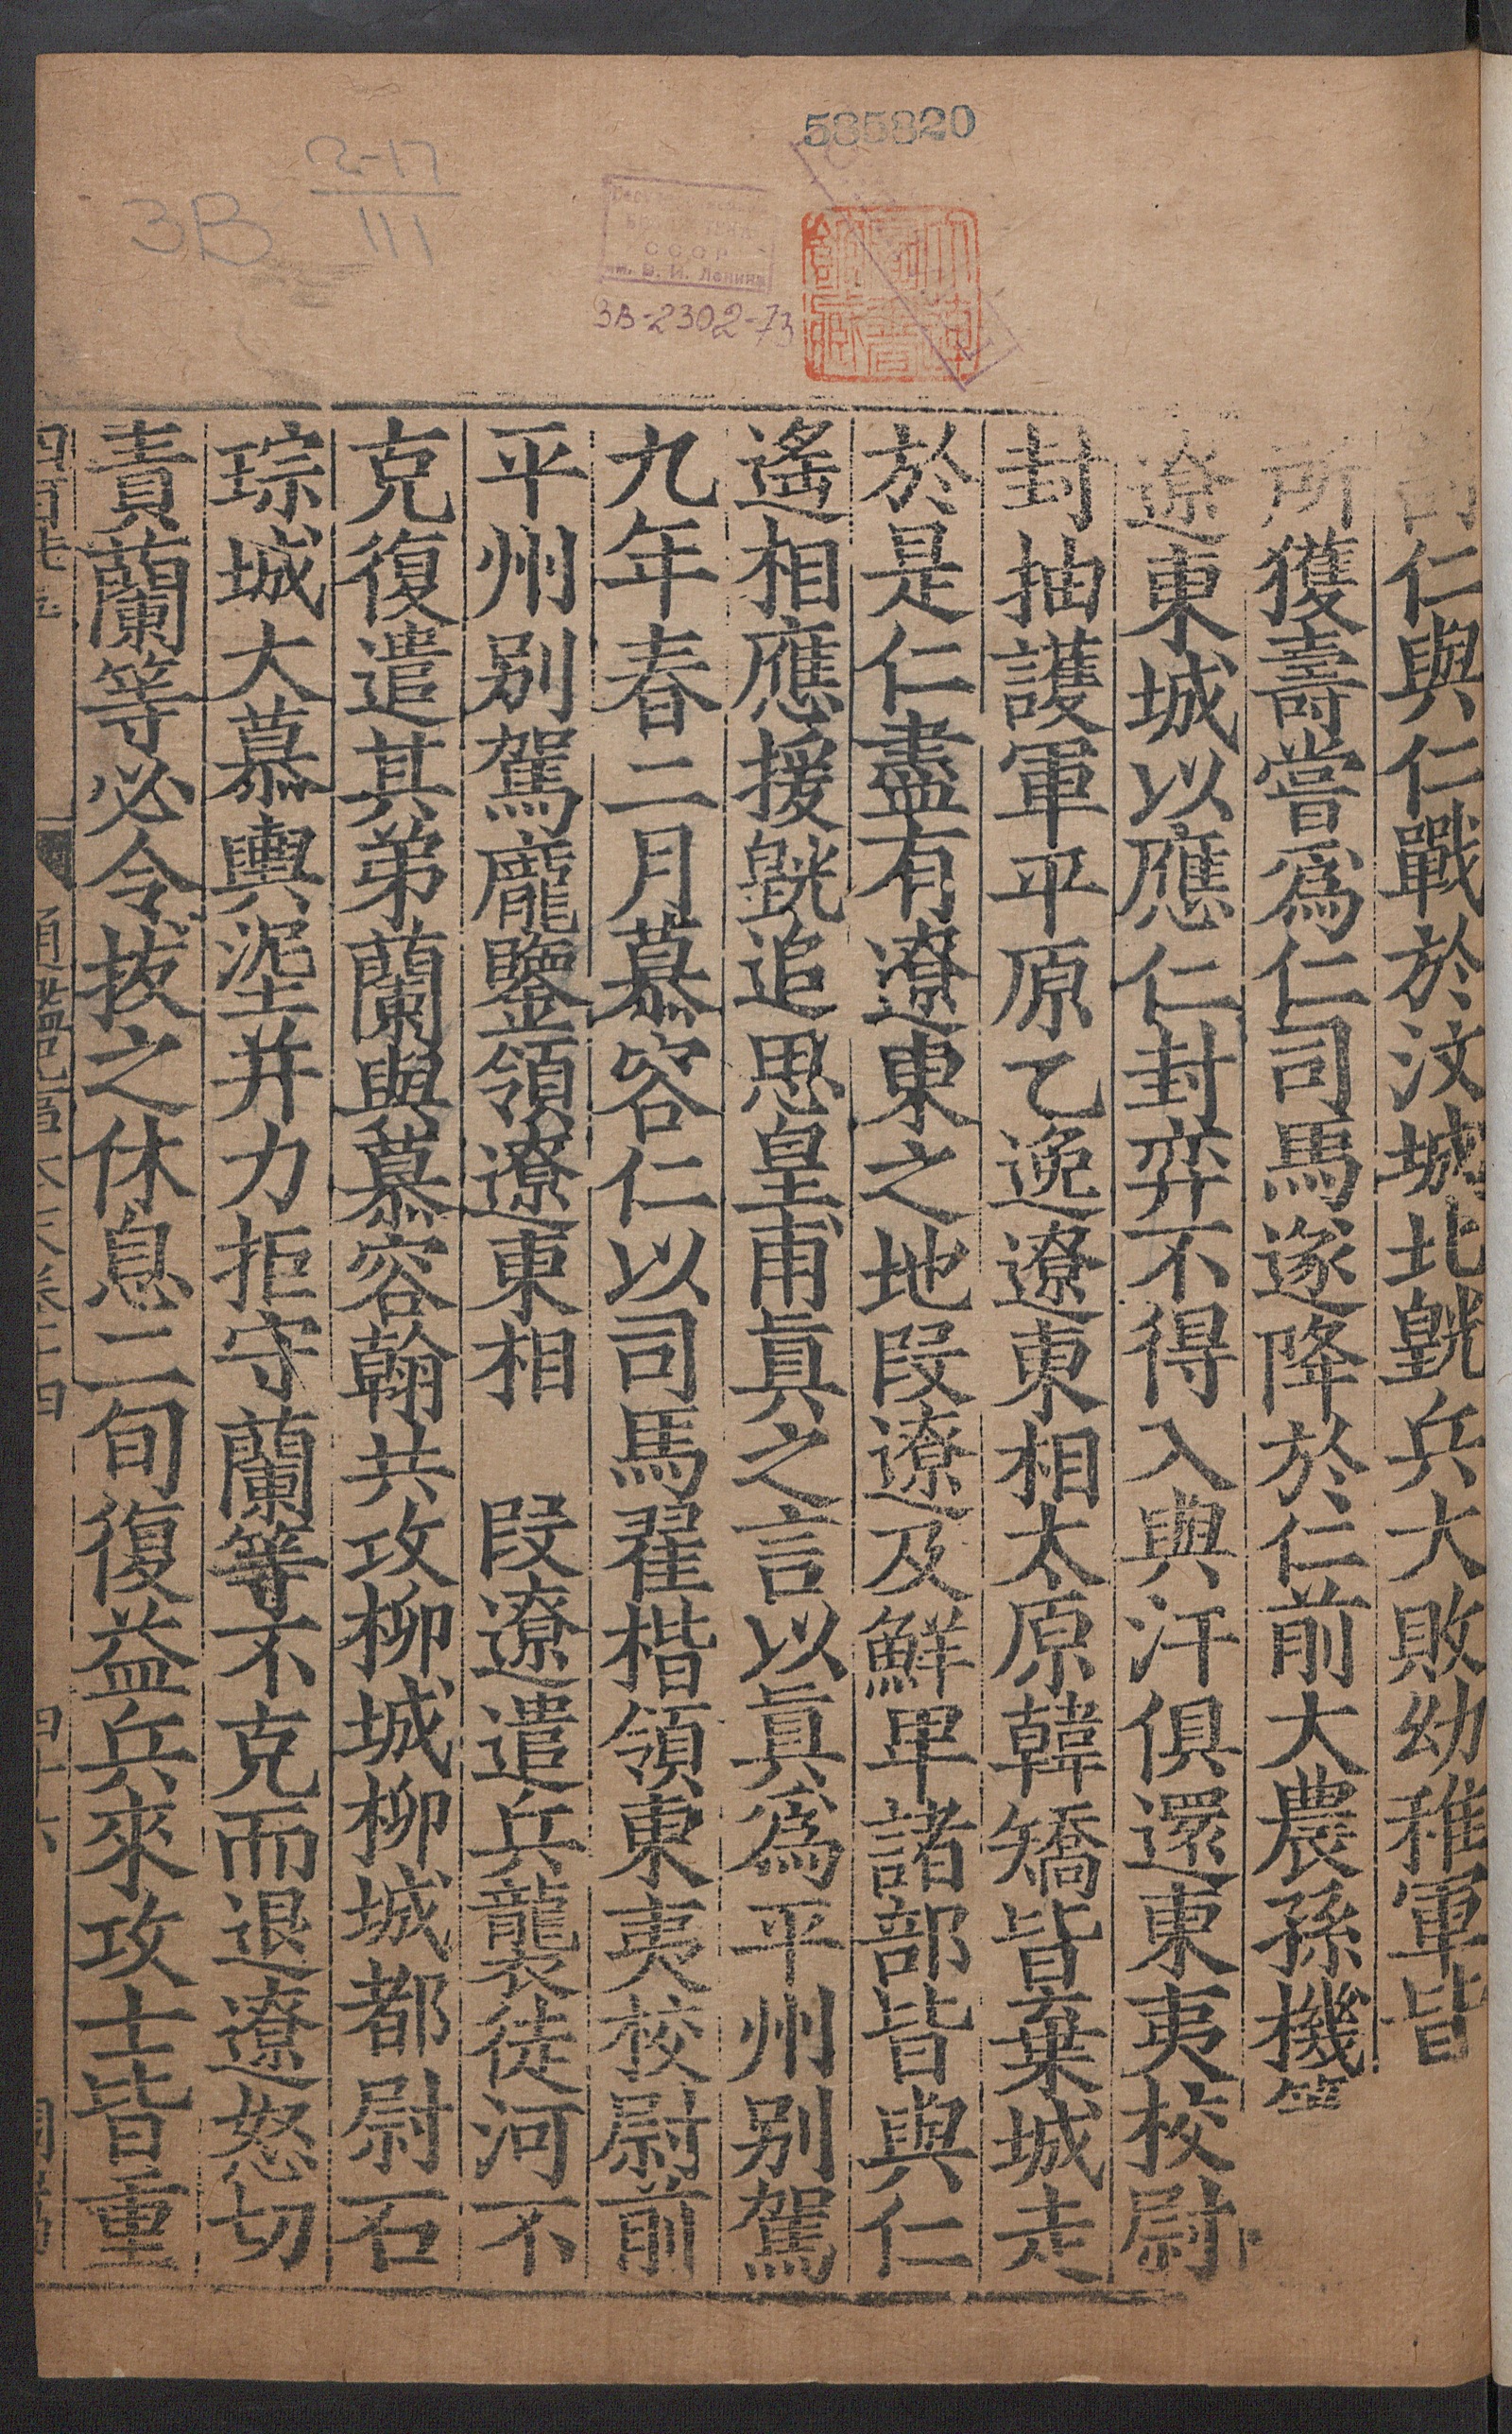 585820
2-17
3B 111
СССР
им. В. И. Ленина
3В-2302-73
仁與仁戰於汶城北皝兵大敗幼稚軍皆
所獲壽嘗爲仁司馬遂降於仁前大農孫機等
遼東城以應仁封弈不得入與汗俱還東夷校尉
封抽護軍平原乙逸遼東相太原韓矯皆棄城走
於是仁盡有遼東之地段遼及鮮卑諸部皆與仁
遙相應援皝追思皇甫眞之言以眞爲平州别駕
九年春二月慕容仁以司馬翟楷領東夷校尉前
平州别駕龐鑒領遼東相 段遼遣兵襲徒河不
克復遣其弟蘭與慕容翰共攻柳城柳城都尉石
琮城大慕輿埿并力拒守蘭等不克而退遼怒切
責蘭等必令拔之休息二旬復益兵來攻士皆重
通鑑紀事本末卷十四 四十六